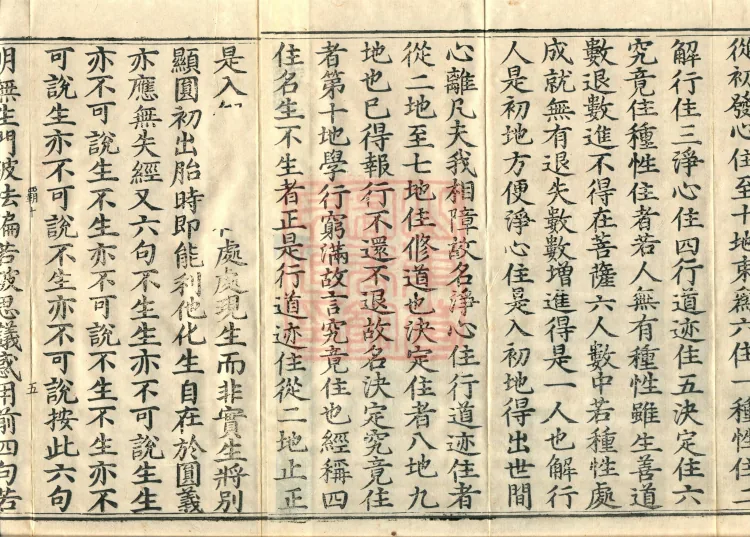 從初發心住至十地束為六住一種性住二
解行住三淨心住四行道迹住五決定住六
究竟住種性住者若人無有種性雖生善道
數退數進不得在菩薩六人數中若種性處
成就無有退失數數增進得是一人也解行
人是初地方便淨心住是入初地得出世間
心離凡夫我相障故名淨心住行道迹住者
從二地至七地住修道也決定住者八地九
地也已得報行不還不退故名決定究竟住
者第十地學行窮滿故言究竟住也經稱四
住名生不生者正是行道迹住從二地止正
是入 處處現生而非實生將別
顯圓初出胎時即能利他化生自在於圓義
亦應無失經又六句不生生亦不可說生生
亦不可說生不生亦不可說不生不生亦不
可說生亦不可說不生亦不可說按此六句
明無生門破法徧若破思議惑用前四句若
霸十
五